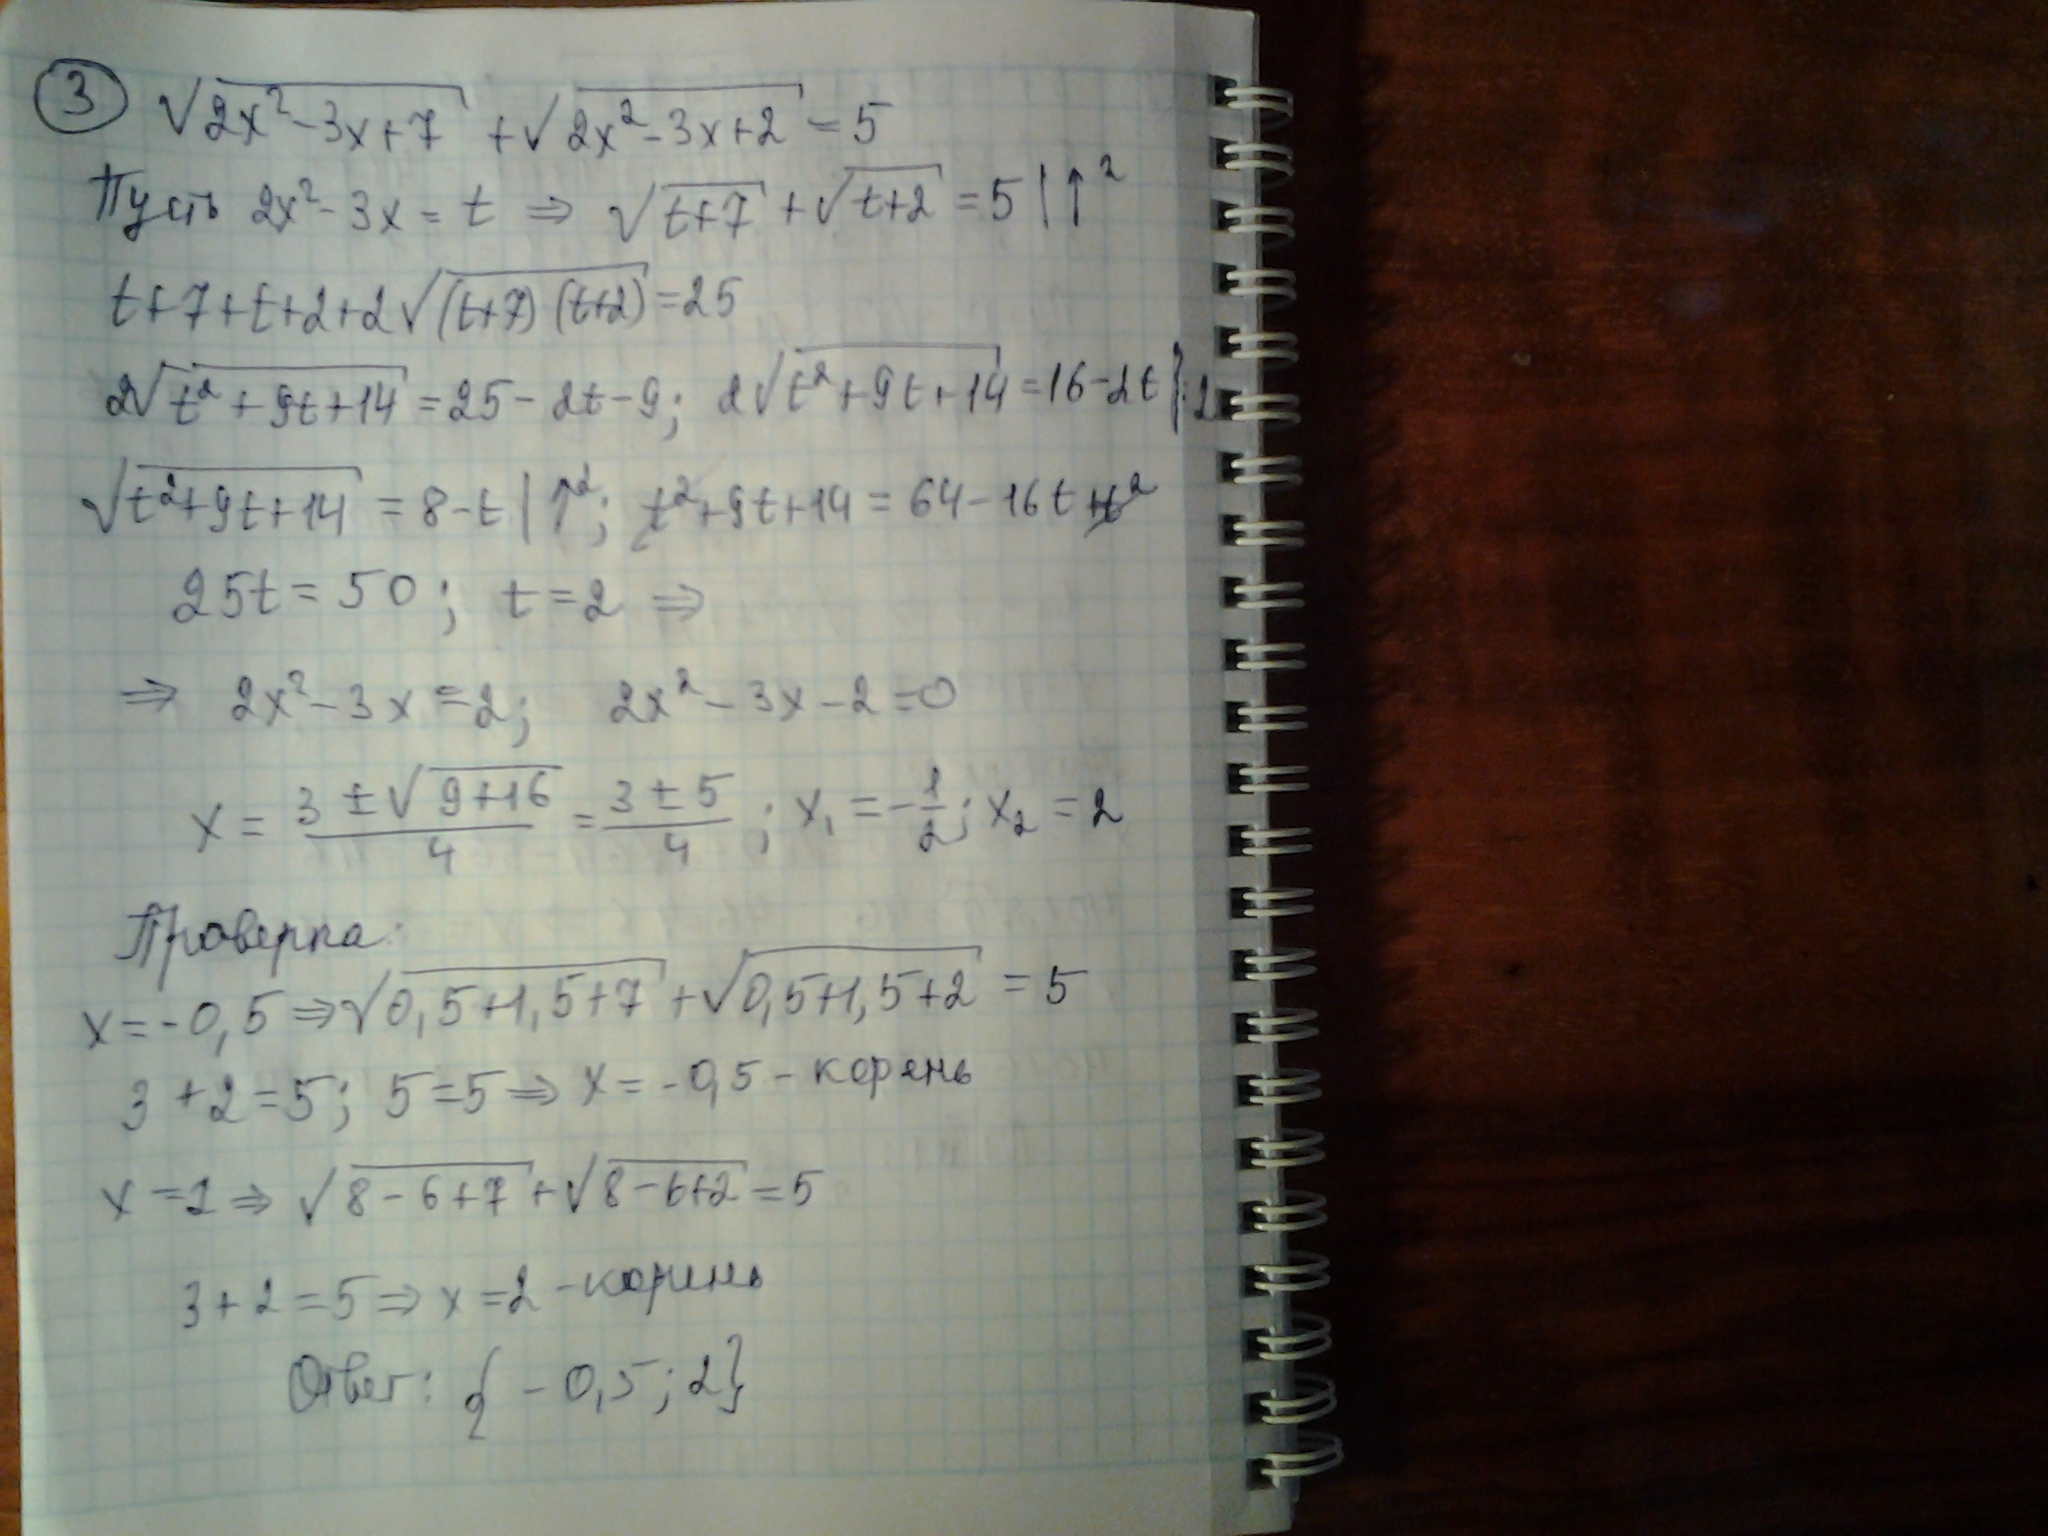 ③ √(2x²-3x+7) + √(2x²-3x+2) = 5
Пусть 2x²-3x = t ⇒ √(t+7) + √(t+2) = 5 | ↑²
t+7+t+2+2√((t+7)(t+2)) = 25
2√(t²+9t+14) = 25-2t-9; 2√(t²+9t+14) = 16-2t |:2
√(t²+9t+14) = 8-t | ↑²; t²+9t+14 = 64-16t+t²
25t = 50; t = 2 ⇒
⇒ 2x²-3x = 2; 2x²-3x-2 = 0
x = (3±√(9+16))/4 = (3±5)/4; x₁ = -1/2; x₂ = 2
Проверка:
x = -0,5 ⇒ √(0,5+1,5+7) + √(0,5+1,5+2) = 5
3+2 = 5; 5 = 5 ⇒ x = -0,5 - корень
x = 2 ⇒ √(8-6+7) + √(8-6+2) = 5
3+2 = 5 ⇒ x = 2 - корень
Ответ: {-0,5; 2}